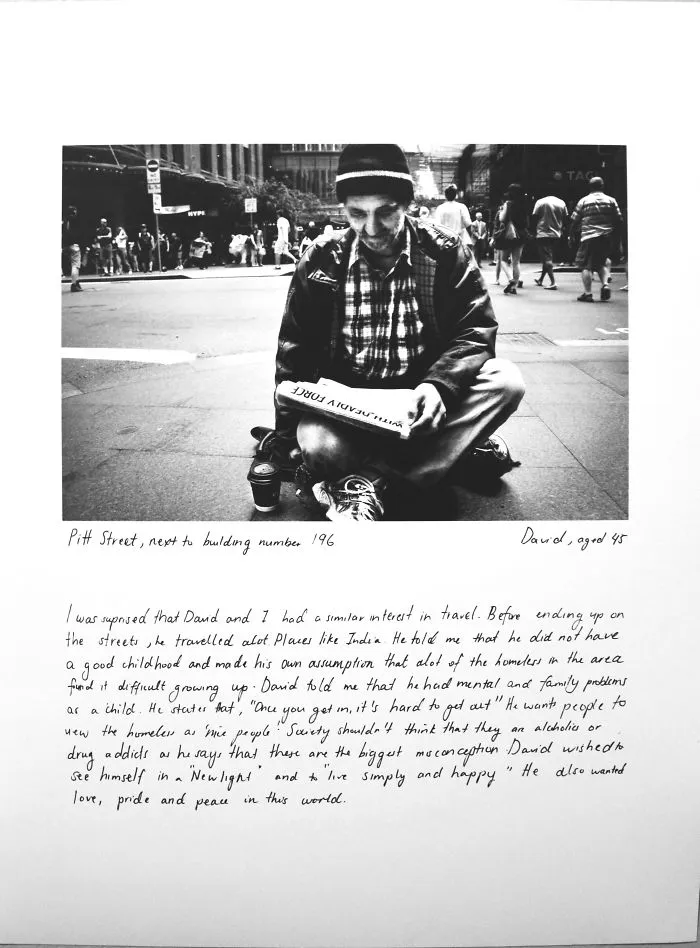 HYPE
TAG
WITH DEADLY FORCE
Pitt Street, next to building number 196
David, aged 45
I was suprised that David and I had a similar interest in travel. Before ending up on
the streets, he travelled alot Places like India. He told me that he did not have
a good childhood and made his own assumption that alot of the homeless in the area
fund it difficult growing up. David told me that he had mental and family problems
as a child. He states that, "Once you get in, it's hard to get out" He wants people to
view the homeless as 'nice people'. Society shouldn't think that they an alcoholics or
drug addicts as he says that these are the biggest misconception. David wished to
see himself in a "New light" and to "live simply and happy" He also wanted
love, pride and peace in this world.